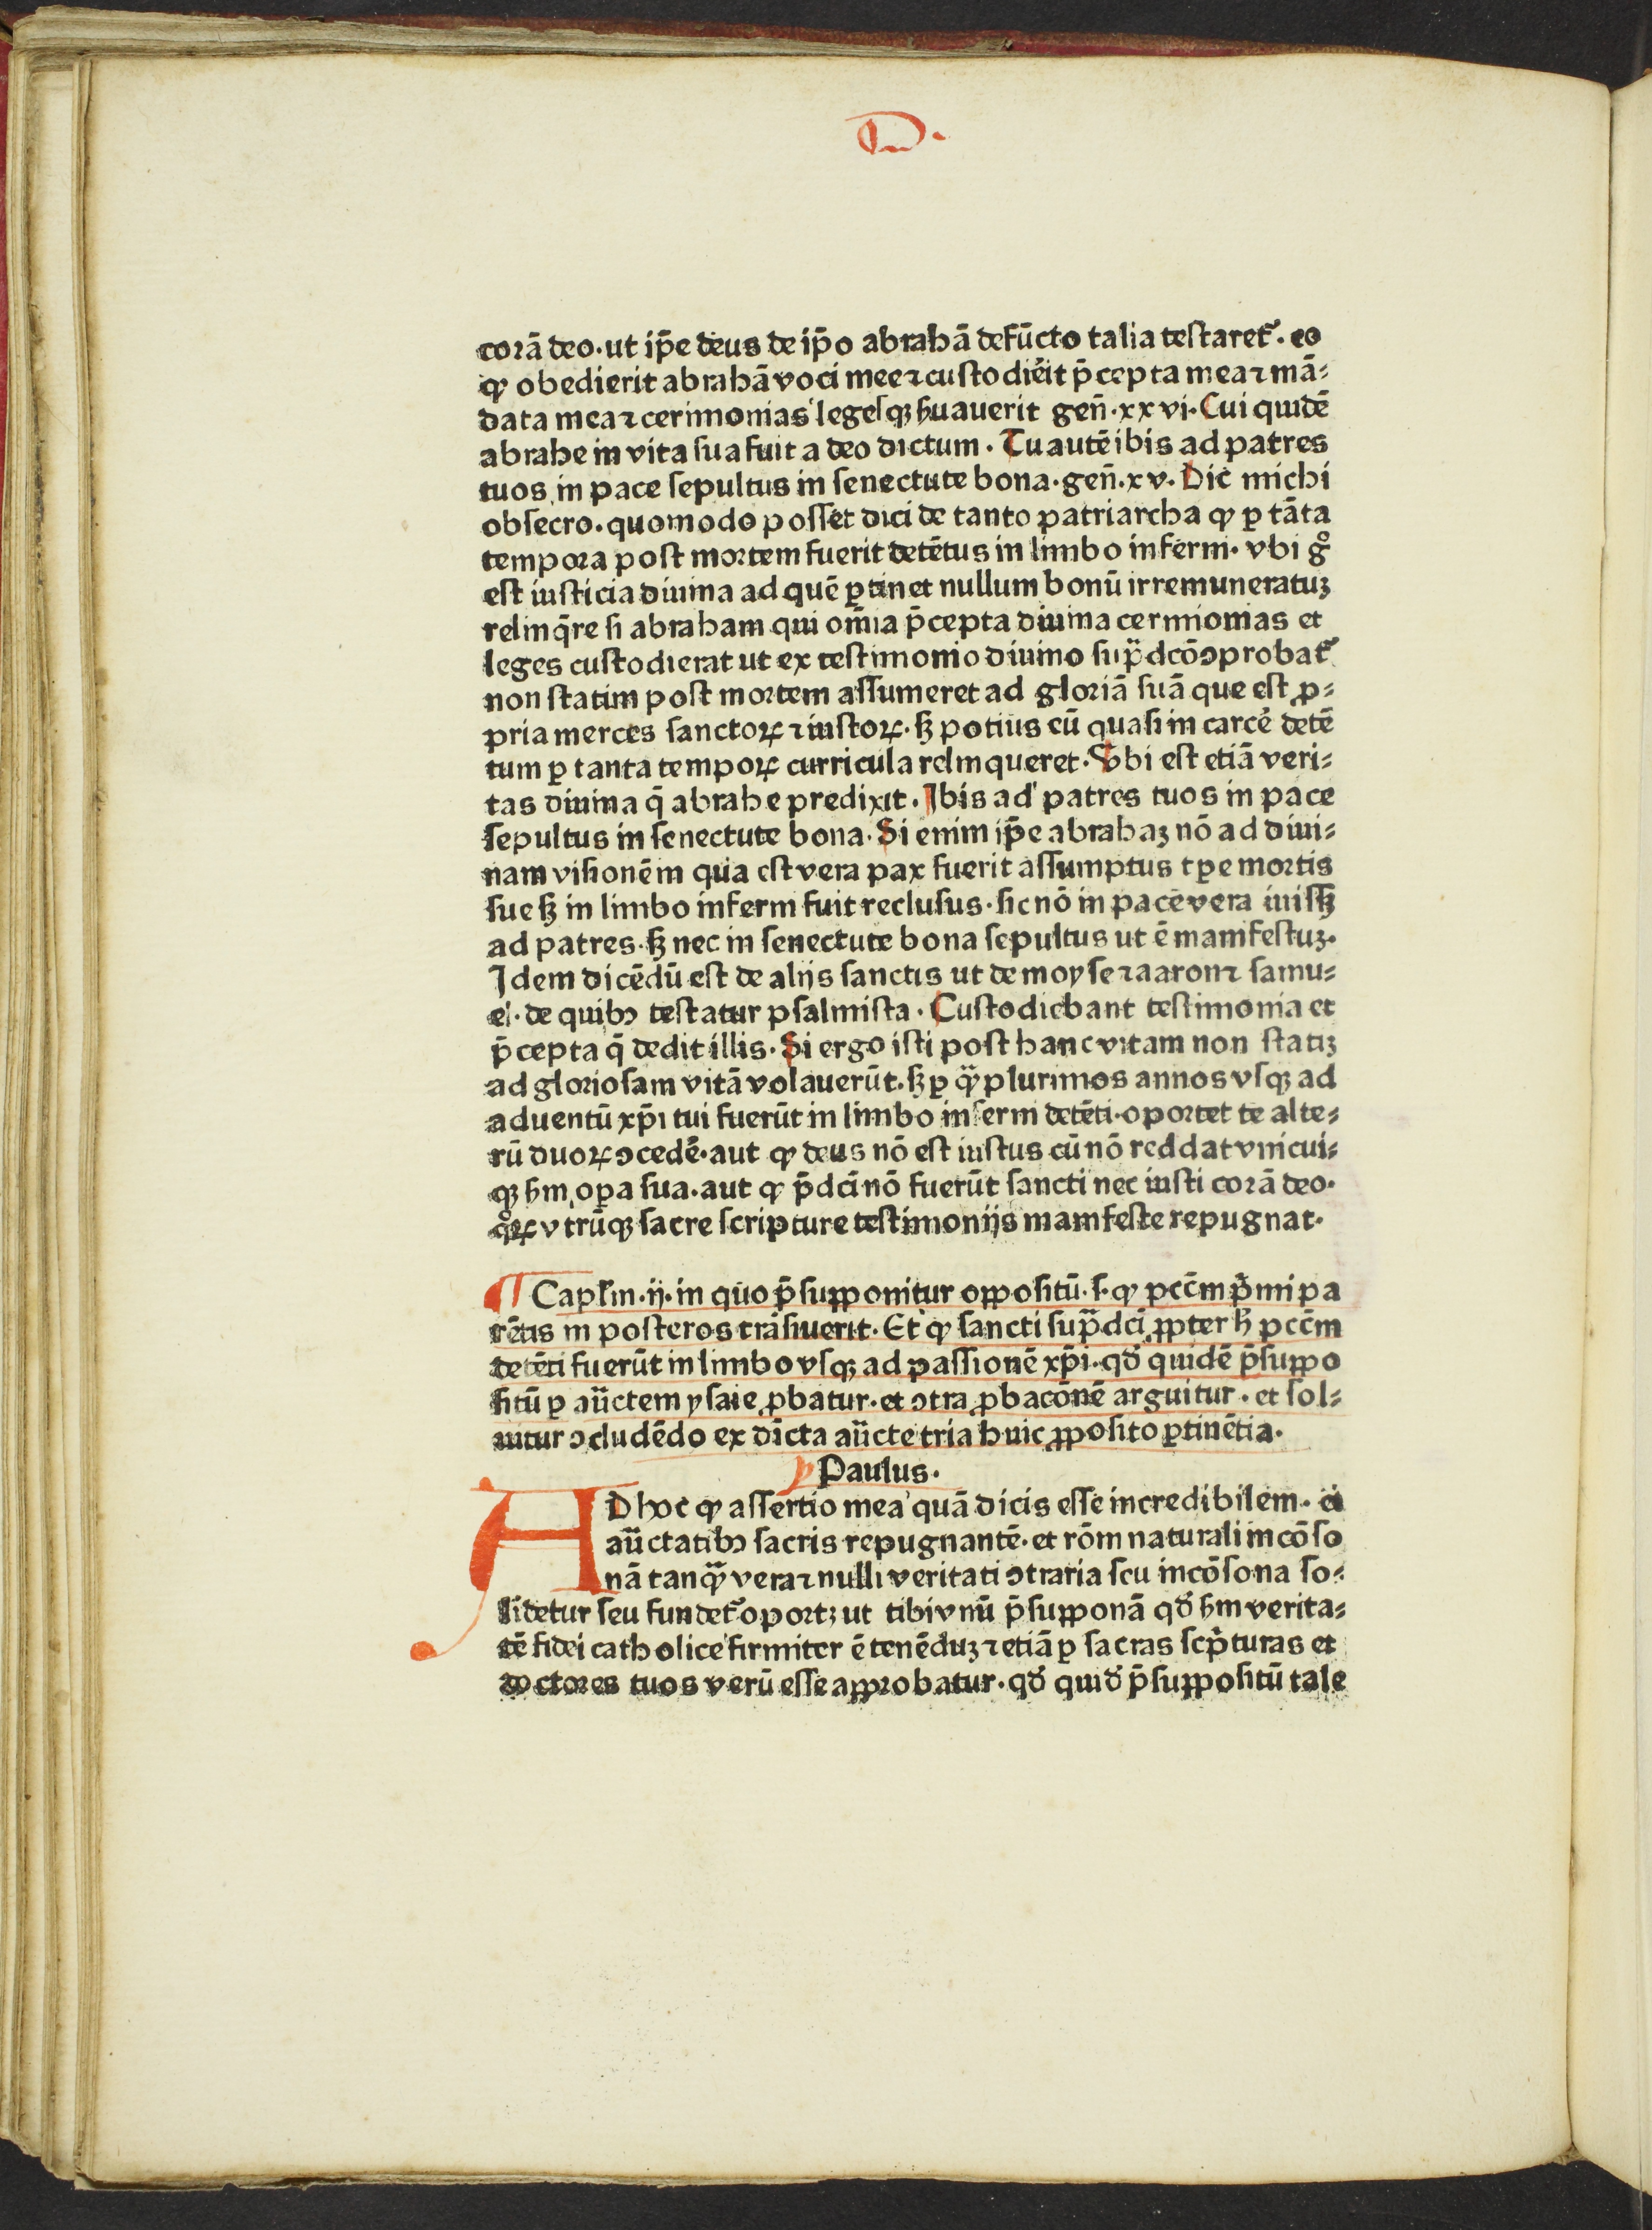 D.
corā deo. ut ip̄e deus de ip̄o abrahā defūcto talia testaretᷣ. eo
ꝙ obedierit abrahā voci mee ⁊ custodiēit p̄cepta mea ⁊ mā⸗
data mea ⁊ cerimonias legesqꝫ ẜuauerit gen̄. xxvi. Cui quidē
abrahe in vita sua fuit a deo dictum. Tu autē ibis ad patres
tuos in pace sepultus in senectute bona. gen̄. xv. Dic michi
obsecro. quomodo posset dici de tanto patriarcha ꝙ ꝑ tāta
tempora post mortem fuerit detētus in limbo inferni. vbi gͦ
est iusticia diuina ad quē ꝑtinet nullum bonū irremuneratuꝫ
relinq̄re si abraham qui om̄ia p̄cepta diuina cermionias et
leges custodierat ut ex testimonio diuino sup̄dcō ꝯprobatᷣ
non statim post mortem assumeret ad gloriā suā que est ꝓ⸗
pria merces sanctoꝝ ⁊ iustoꝝ. sꝫ potius eū quasi in carcē detē
tum ꝑ tanta tempoꝝ curricula relinqueret. Vbi est etiā veri⸗
tas diuina q̄ abrahe predixit. Ibis ad patres tuos in pace
sepultus in senectute bona. Si enim ip̄e abrahaꝫ nō ad diui⸗
nam visionēm qua est vera pax fuerit assumptus tꝑe mortis
sue sꝫ in limbo inferni fuit reclusus. sic nō in pace vera iuissꝫ
ad patres. sꝫ nec in senectute bona sepultus ut ē manifestuꝫ.
Idem dicēdū est de alijs sanctis ut de moyse ⁊ aaron ⁊ samu⸗
el. de quibꝰ testatur psalmista. Custodiebant testimonia et
p̄cepta q̄ dedit illis. Si ergo isti post hanc vitam non statiꝫ
ad gloriosam vitā volauerūt. sꝫ ꝑ qͣꝫ plurimos annos vsqꝫ ad
aduentū xp̄i tui fuerūt in limbo inferni detēti. oportet te alte⸗
rū duoꝝ ꝯcedē. aut ꝙ deus nō est iustus cū nō reddat vnicui⸗
qꝫ ẜm oꝑa sua. aut ꝙ p̄dcī nō fuerūt sancti nec iusti corā deo.
qͦꝝ vtrūqꝫ sacre scripture testimonijs manifeste repugnat.
¶ Caplm̄. ij. in quo p̄supponitur oppositū. s. ꝙ pccm̄ pͥmi pa
rētis in posteros trāsiuerit. Et ꝙ sancti sup̄dcī ꝓpter hͦ pccm̄
detēti fuerūt in limbo vsqꝫ ad passionē xp̄i. qd̄ quidē p̄suppo
sitū ꝑ aūctem ysaie ꝓbatur. et ꝯtra ꝓbacōnē arguitur. et sol⸗
uitur ꝯcludēdo ex dicta aūcte tria huic ꝓposito ꝑtinētia.
Paulus.
AD hoc ꝙ assertio mea quā dicis esse incredibilem. ei
aūctatibꝰ sacris repugnantē. et rōm naturali incōso
nā tanqͣꝫ vera ⁊ nulli veritati ꝯtraria seu incōsona so⸗
lidetur seu fundetᷣ oportꝫ ut tibi vnū p̄supponā qd̄ ẜm verita⸗
tē fidei catholice firmiter ē tenēduꝫ ⁊ etiā ꝑ sacras scpͥturas et
doctores tuos verū esse approbatur. qd̄ quid̄ p̄suppositū tale